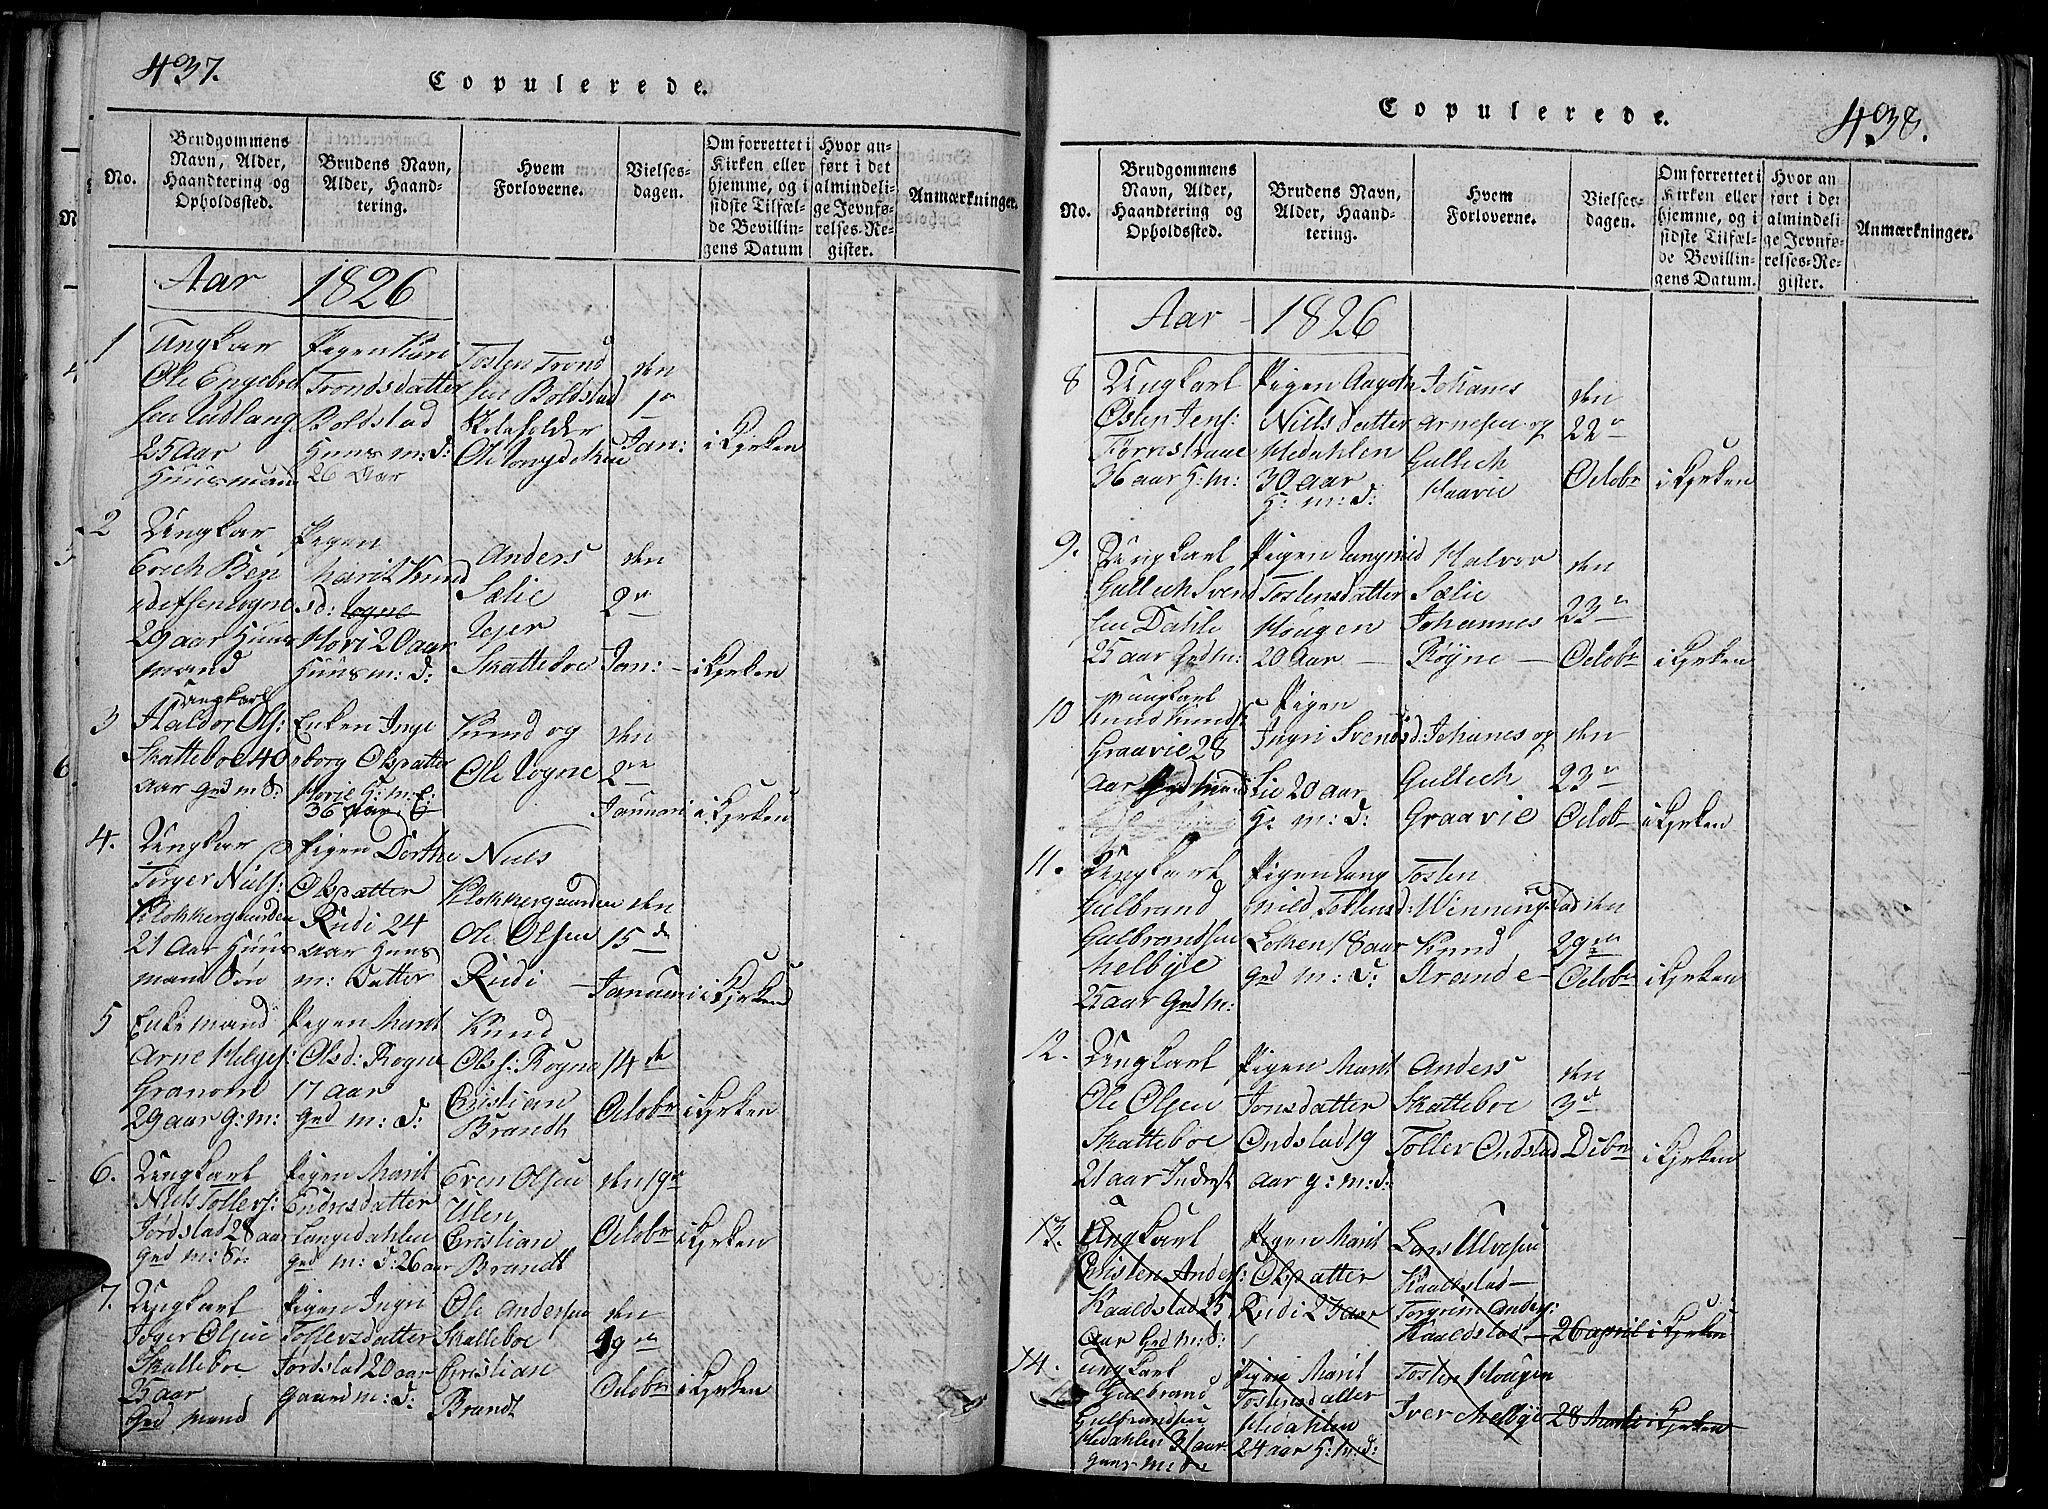 437.
Copulerede.
No.
Brudgommens Navn, Alder, Haandtering og Opholdssted.
Brudens Navn, Alder, Haandtering.
Hvem Forloverne.
Vielses-dagen.
Om forrettet i Kirken eller hjemme, og i sidste Tilfælde Bevillingens Datum
Hvor anført i det almindelige Jevnførelses-Register.
Anmærkninger.
Aar 1826
1
Ungkar
Ole Engebret
sen
25 Aar
Huusmand
Pigen Kari
Trondsdatter
Boldstad
Huusm: d:
26 Aar
Tosten Trond
sen Boldstad
den
1ste
Jan:
i Kjrken
2
Ungkar
Erich Ben
29 aar Huus
mand
Pigen
Marit Knud
sd: Rogne
Hovi 20 aar
Huusm: d:
Anders
Sælie
Skatteboe
den
2den
Jan: -
i Kjrken
3
Ungkarl
Haldor Ols:
Skatteboe 40
aar Grd m S:
Enken Inge
borg Olsdatter
36 aar
Knud og
Ole Rogne
den
2den
Januari
i Kjrken
4.
Ungkar
Torger Niels:
Klokkergaarden
21 Aar Huus
mand Søn
Pigen Dorthe
Olsdatter
Rudi 24
aar Huus
m: Datter
Niels
Klokkergaarden
Ole Olsen
Rudi -
den
15de
Januari
i Kjrken
5
Enkemand
Arne Helges:
Granom
29 aar G: m:
Pigen Marit
Olsd: Rogne
17 aar
Grd m: d:
Knud
Ols: Rogne
Cristian
Brandt
14de
Octobr
i Kjrken
6.
Ungkarl
Niels Tollers:
Jordstad 28 aar
Grd m: Sø:
Pigen Marit
Endresdatter
Langedahlen
Grd m: d: 26 aar
Even Olsen
Cristian
Brandt
den 19de
Octobr
i Kjrken
7.
Ungkarl
Olsen
Skatteboe
25 aar
Grd mand
Pigen Ingri
Tollersdatter
Jordstad 20 aar
Gaard m: d:
Ole Andersen
Skatteboe
Cristian
Brandt
den
19de
Octobr
i Kjrken
438.
Copulerede.
No.
Brudgommens Navn, Alder, Haandtering og Opholdssted.
Brudens Navn, Alder, Haandtering.
Hvem Forloverne.
Vielses-dagen.
Om forrettet i Kirken eller hjemme, og i sidste Tilfælde Bevillingens Datum.
Hvor anført i det almindelige Jevnførelses-Register.
Anmærkninger.
Aar - 1826
8
Ungkarl
Østen Jens:
36 aar H: m:
Pigen Aagoth
Nielsdatter
Hedahlen
30 aar
H: m: d:
Johanes
Arnesen og
Gullech
Haavie
den
22de
Octobr
i Kjrken
9.
Ungkarl
Gullech Svend
sen Dahle
25 aar Grd m:
Pigen Rangnild
Tostensdatter
Hougen
20 Aar -
Halvor
Sælie
Johannes
Røyne -
den
23de
Octobr
i Kjrken
10
Ungkarl
Knud Knuds
Graavie 28
aar Grd mand
Pigen
Ingri Svendsd:
Lie 20 aar
H: m: d:
Johanes og
Gullech
Graavie
den
23de
Octobr
i Kjrken
11.
Ungkarl
Gulbrand
Gulbrandsen
Melbÿe
25 aar Grd m:
Pigen Rang
nild Tostensd:
Løken 18 aar
Grd m: d:
Tosten
Winningstad
Knud
Strande -
den
29de
Octobr
i Kjrken
12.
Ungkarl
Ole Olsen
Skatteboe
21 aar Inderst
Pigen Marit
Jonsdatter
Ondstad 19
aar g: m: d:
Anders
Skatteboe
Toller Ondstad
den
3d
Debr
i Kjrken
13.
Ungkarl
Cristen Anders:
Kaaldstad 25
aar Grd m: S:
Pigen Marit
Olsdatter
Rudi 24 aar
Lars
Kaaldstad -
Torgrim Anders:
Kaaldstad -
26 april
i Kjrken
14.
Ungkarl
Gulbrand
Gulbrandsen
Hedahlen 31 aar
Pigen Marit
Tostensdatter
Hedahlen
24 aar H: m: d:
Tosten Hougen
Iver Melbÿe
28 Martii
i Kjrken